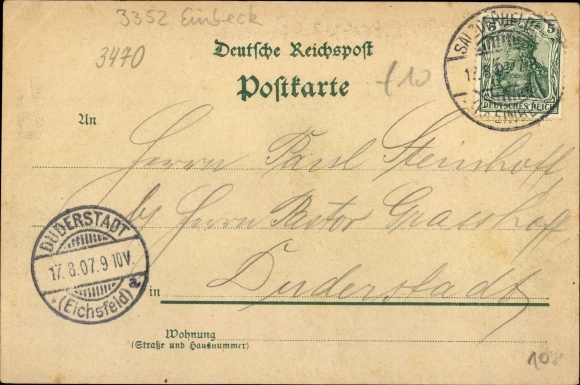 3352 Einbeck
3470
Deutsche Reichspost
Postkarte
£10
SALZDERHELDEN
5
DEUTSCHES REICH
An
Herrn Paul Steinhoff
Herrn Pastor Grasshoff
DUDERSTADT
17.8.07.9-10V.
*(Eichsfeld)a
in Duderstadt
Wohnung
(Straße und Hausnummer)
10